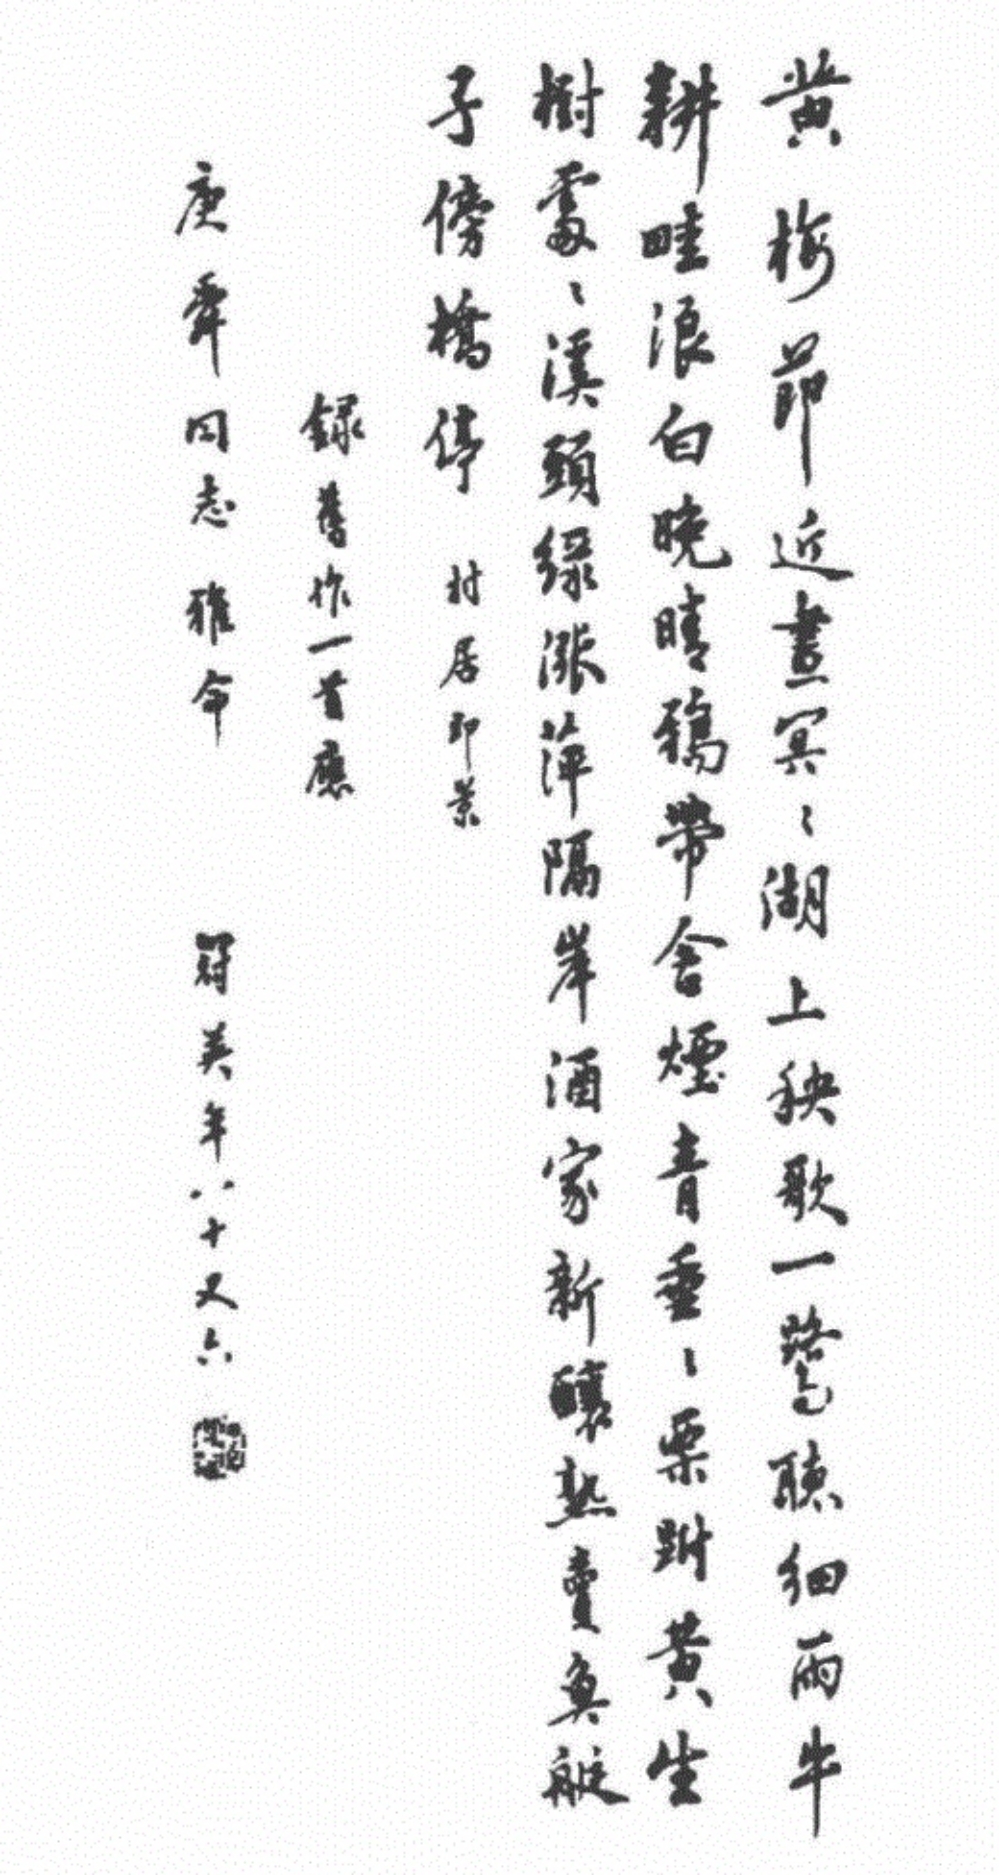 黄梅節近晝冥〻湖上秧歌一鷺聽細雨牛
耕畦浪白曉晴鵶帶舍煙青垂〻栗跗黄生
樹處〻溪頭緑漲萍隔岸酒家新釀熟賣魚艇
子傍橋停 村居即景
録舊作一首應
庚舜同志雅命 冠英年八十又六